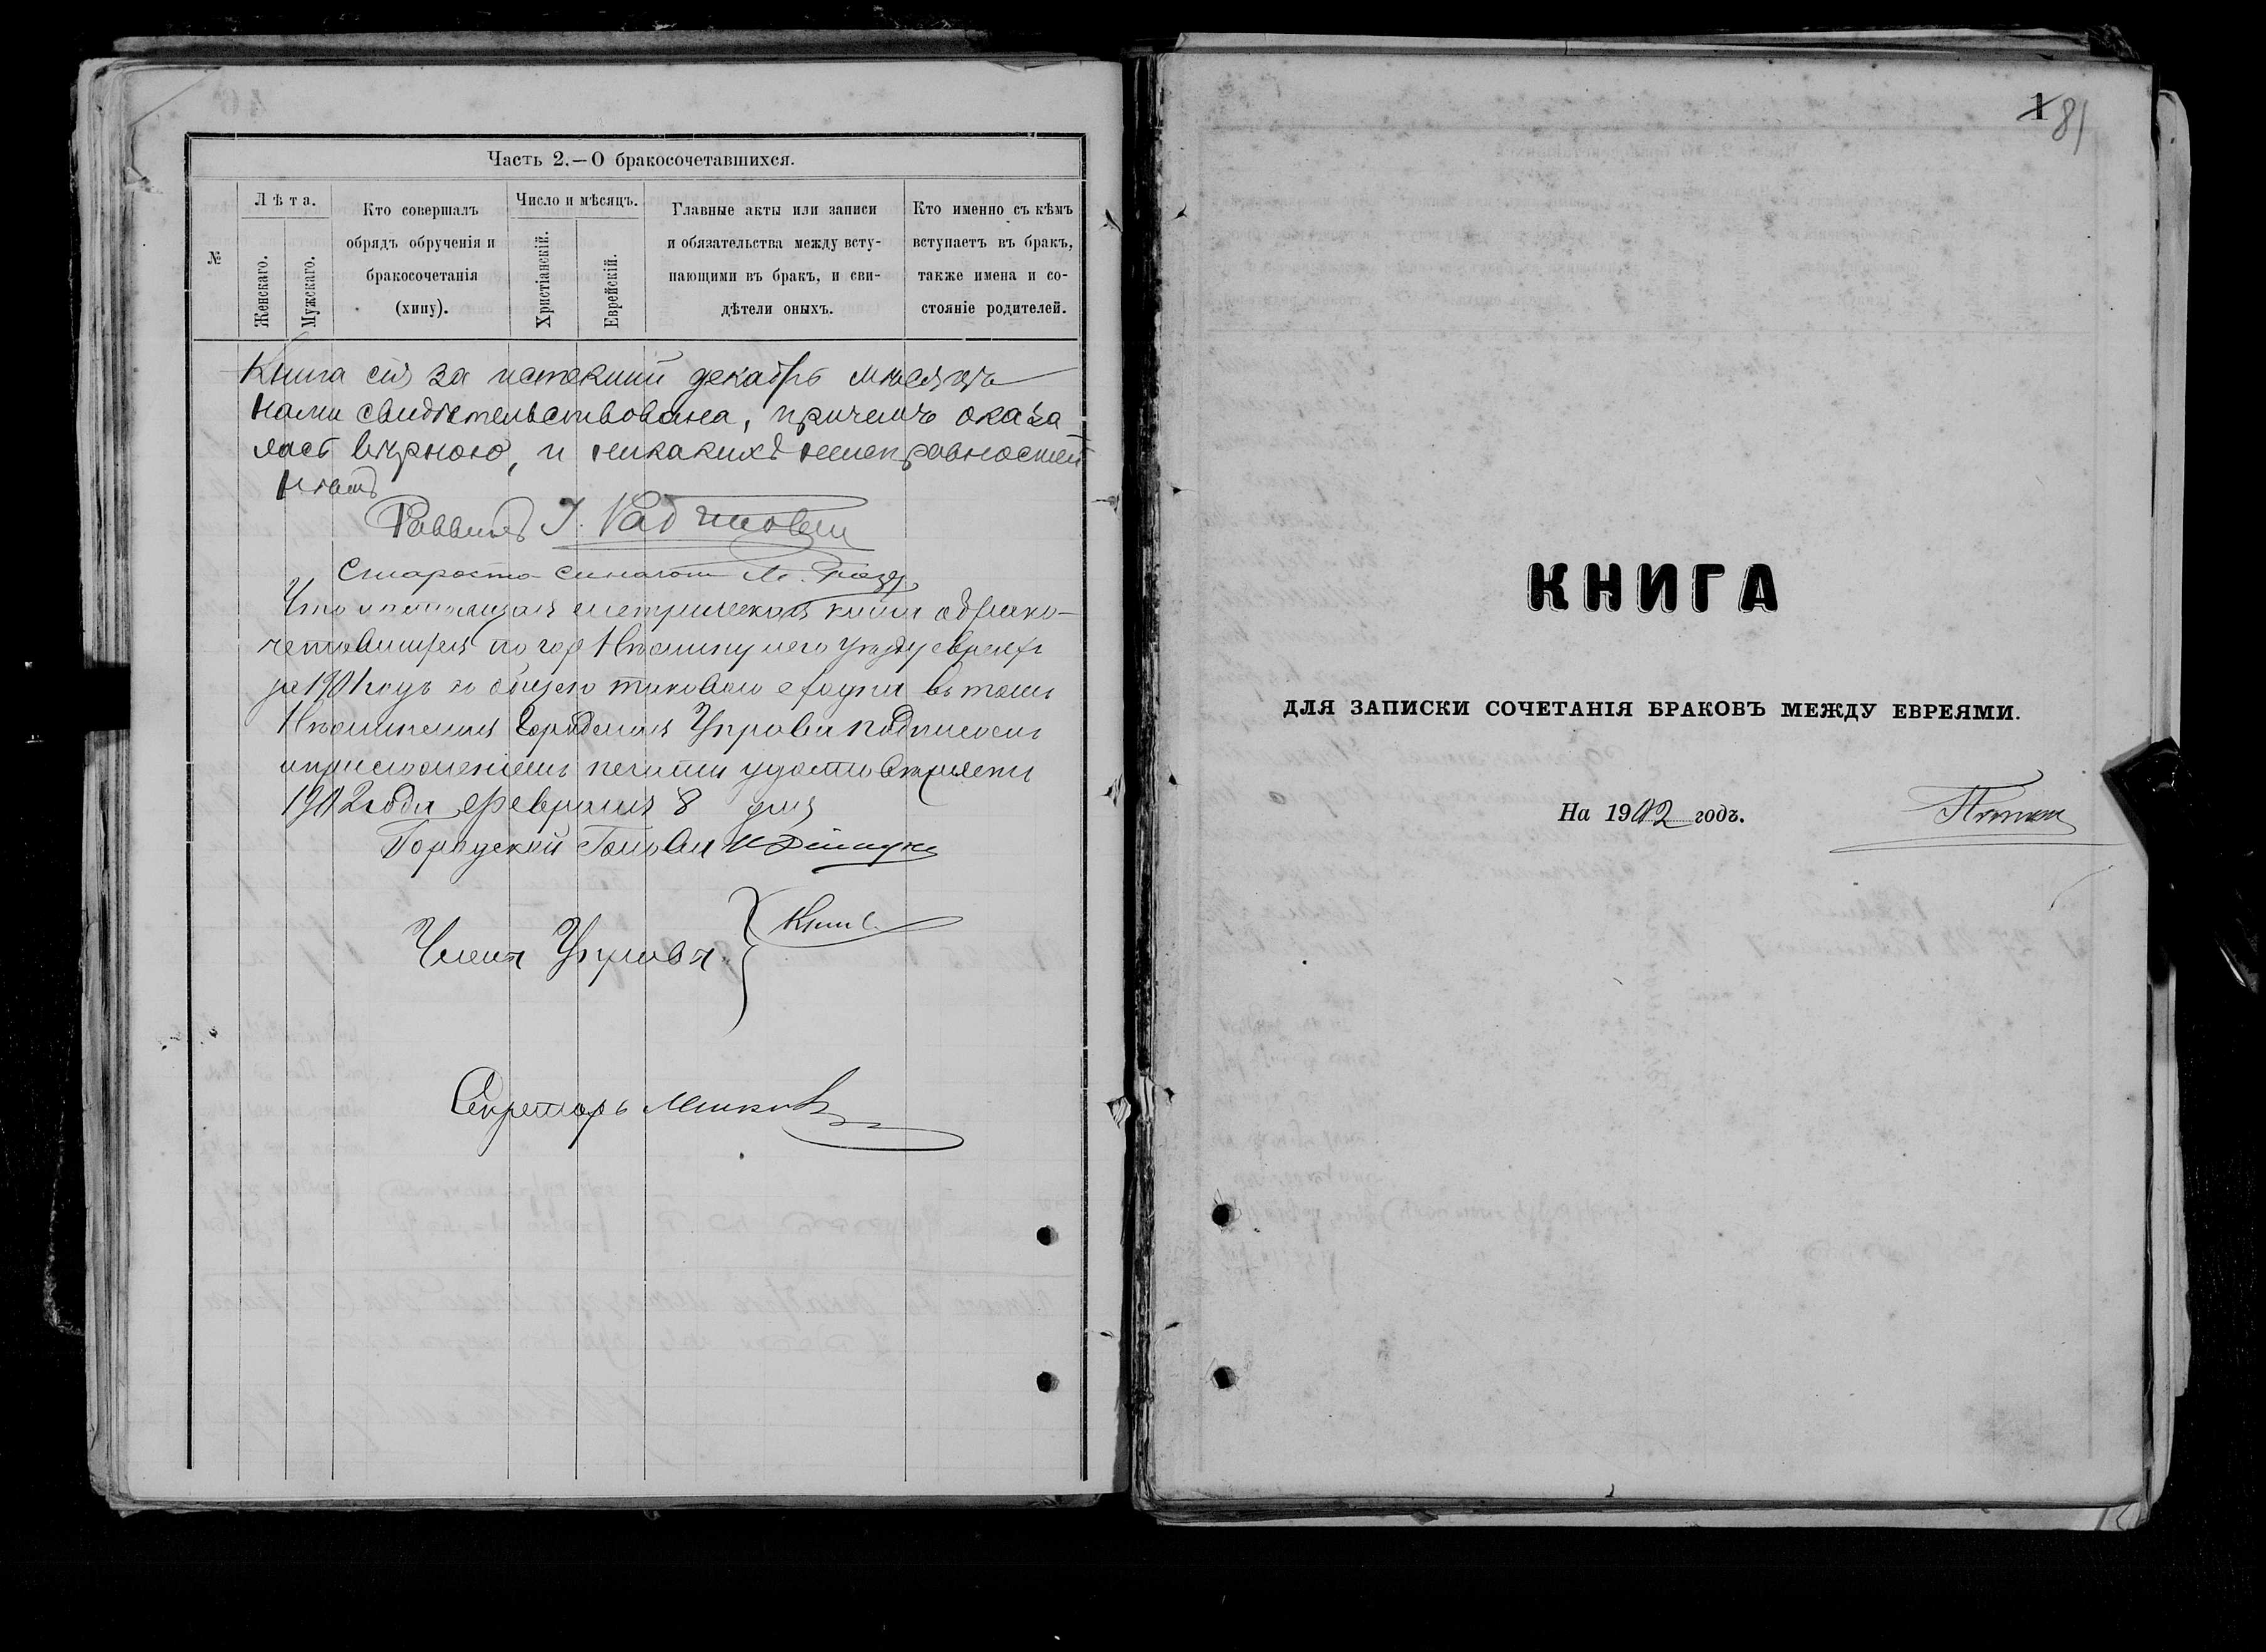 Часть 2.—О бракосочетавшихся.
№
Лѣта.
Женскаго.
Мужскаго.
Кто совершалъ
обрядъ обрученія и
бракосочетанія
(хипу).
Число и мѣсяцъ.
Христіанскій.
Еврейскій.
Главные акты или записи
и обязательства между всту-
пающими въ бракъ, и сви-
дѣтели оныхъ.
Кто именно съ кѣмъ
вступаетъ въ бракъ,
также имена и со-
стояніе родителей.
Книга сія за истекшій декабрь мѣсяцъ
нами свидѣтельствована, причемъ оказа
лась вѣрною, и никакихъ неисправностей
нѣтъ
Раввинъ
Староста синагоги М.
Что настоящая метрическая книга о брако-
четавшихся по гор уѣзду евреях
за 1901 годъ въ томъ
Городская Управа подписью
и приложеніемъ печати удостовѣряетъ
1902 года февраля 8 дня
Городской Голова
Члены Управы
Секретарь
1 81
КНИГА
ДЛЯ ЗАПИСКИ СОЧЕТАНІЯ БРАКОВЪ МЕЖДУ ЕВРЕЯМИ.
На 1902 годъ.